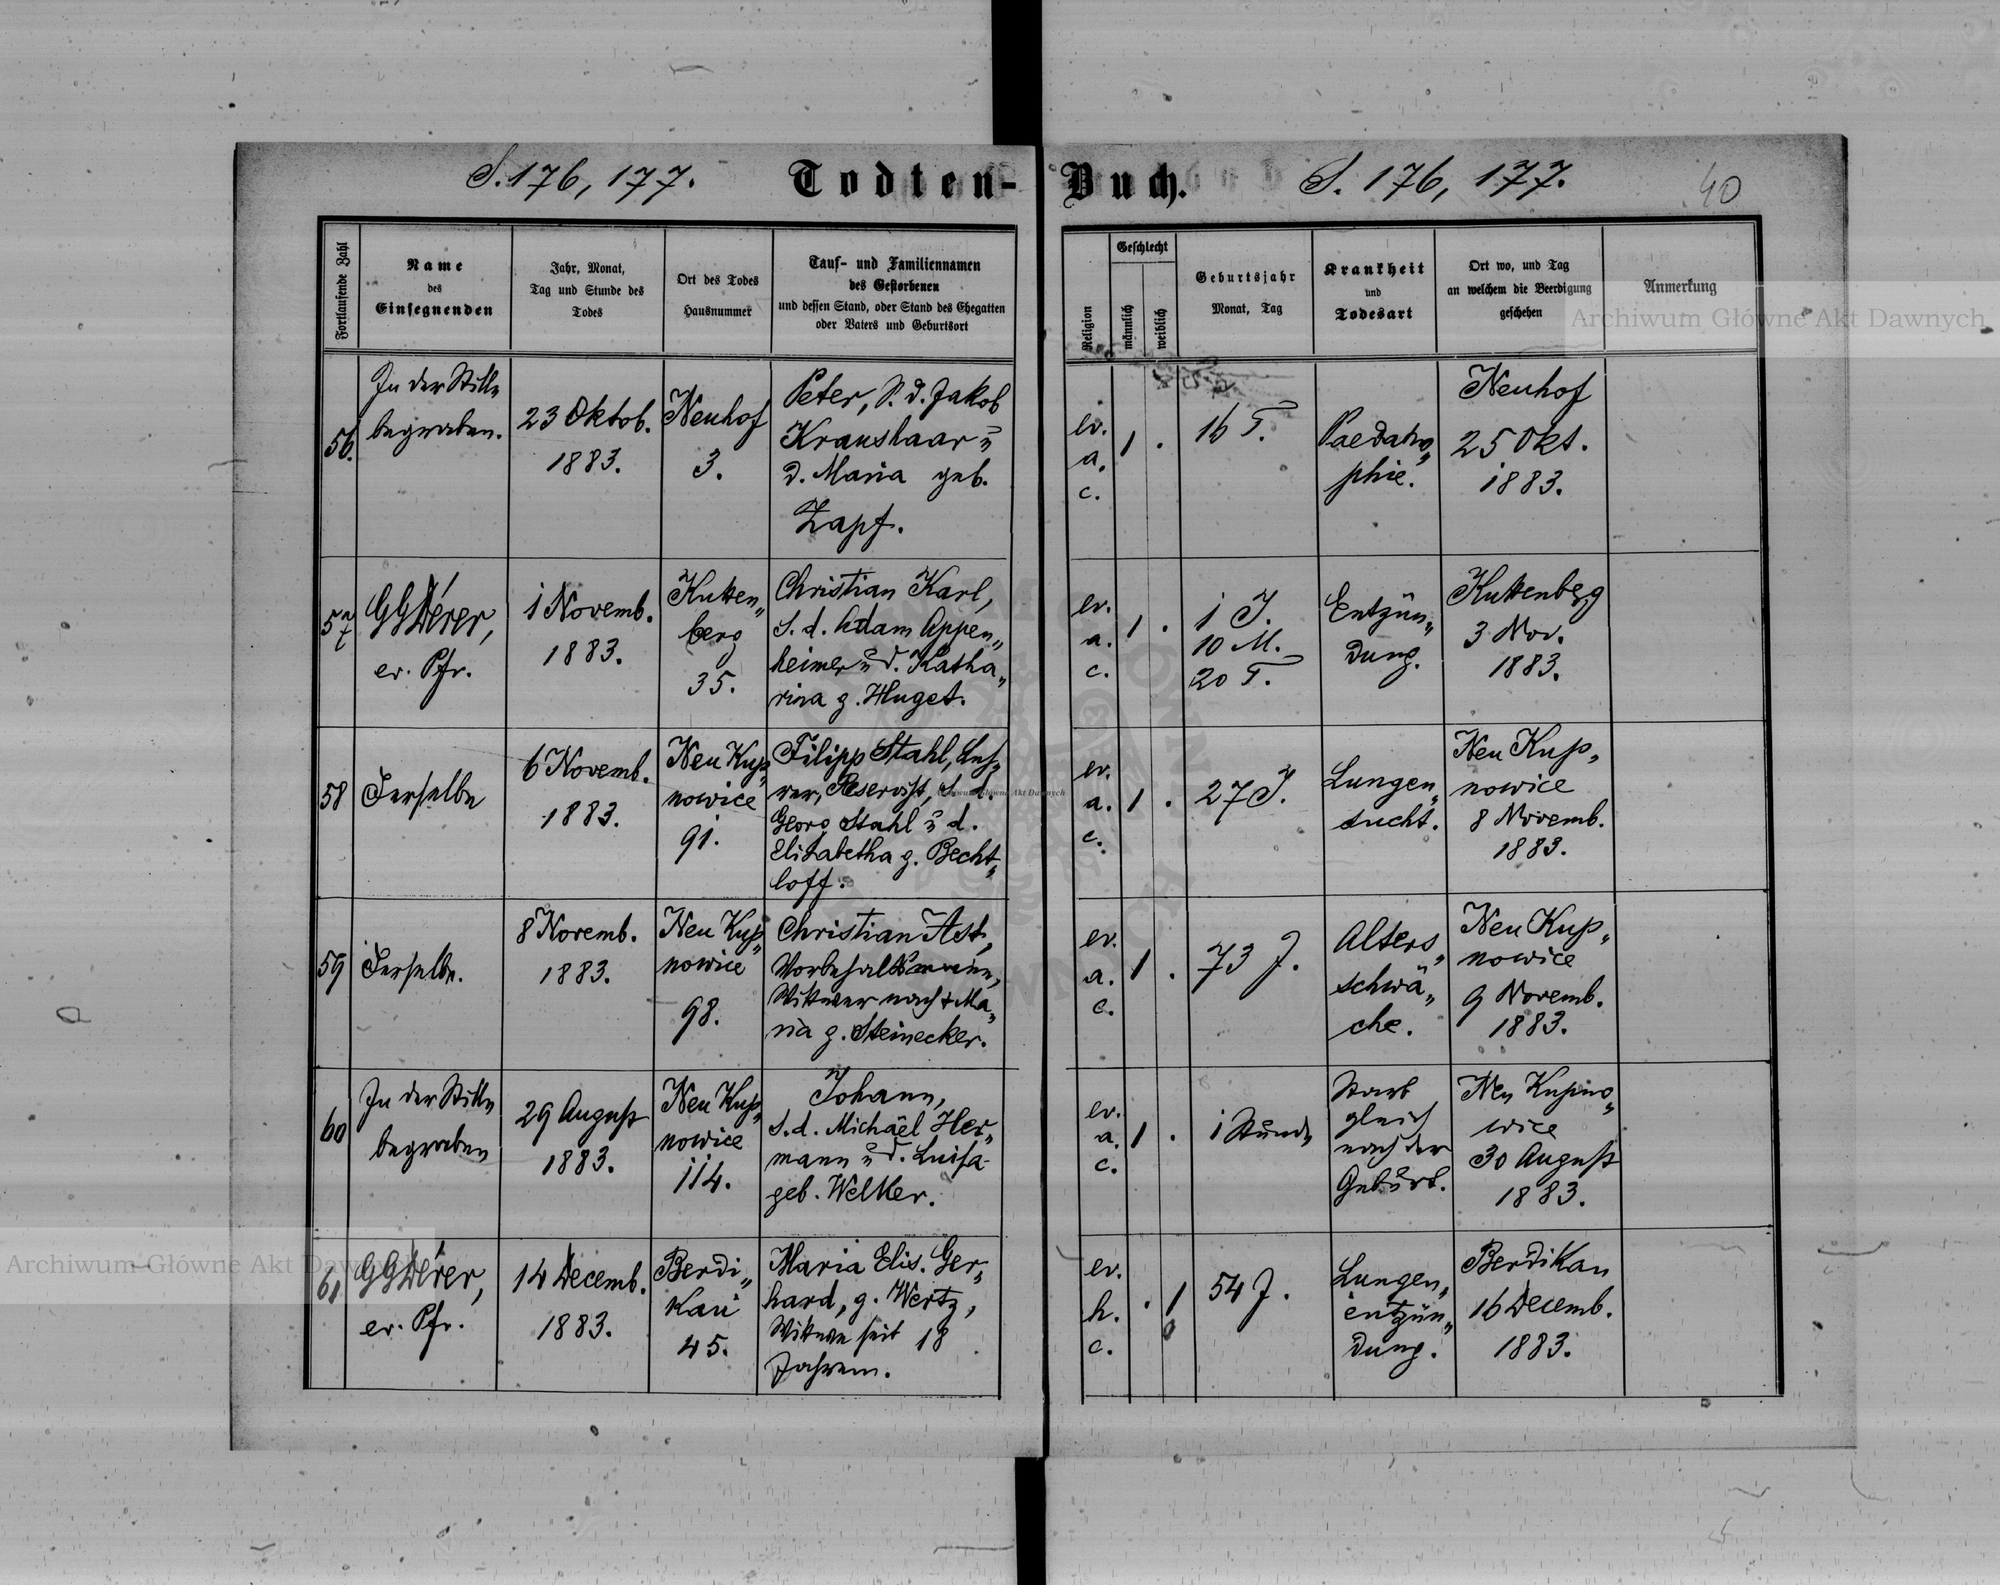 S. 176, 177.
Todten-Buch.
S. 176, 177.
40
Fortlaufende Zahl
Name
des
Einsegnenden
Jahr, Monat,
Tag und Stunde des
Todes
Ort des Todes
Hausnummer
Tauf- und Familiennamen
des Gestorbenen
und dessen Stand, oder Stand des Ehegatten
oder Vaters und Geburtsort
Religion
Geschlecht
männlich
weiblich
Geburtsjahr
Monat, Tag
Krankheit
und
Todesart
Ort wo, und Tag
an welchem die Beerdigung
geschehen
Anmerkung
56.
In der Stille
begraben.
23 Oktob.
1883.
Neuhof
3.
Peter, S. d. Jakob
Kraushaar u
d. Maria geb.
Zapf.
ev.
a.
c.
1 .
16 T.
Paedatro„
phie.
Neuhof
25 Okt.
1883.
57
GGDérer,
ev. Pfr.
1 Novemb.
1883.
Kutten„
berg
35.
Christian Karl,
S. d. Adam Appen„
heimer u d. Katha„
rina g. Huget.
ev.
a.
c.
1 .
1 J.
10 M.
20 T.
Entzün„
dung.
Kuttenberg
3 Nov.
1883.
58
Derselbe
6 Novemb.
1883.
Neu Kup„
nowice
91.
Filipp Stahl, Leh„
rer, Reservist, S. d.
Georg Stahl u d.
Elisabetha g. Becht„
loff.
ev.
a.
c.
1 .
27 J.
Lungen„
sucht.
Neu Kup„
nowice
8 Novemb.
1883.
59
Derselbe.
8 Novemb.
1883.
Neu Kup„
nowice
98.
Christian Ast,
Vorbehaltsmann,
Wittwer nach + Ma„
ria g. Steinecker.
ev.
a.
c.
1 .
73 J.
Alters„
schwä„
che.
Neu Kup„
nowice
9 Novemb.
1883.
60
In der Stille
begraben
29 August
1883.
Neu Kup„
nowice
114.
Johann,
S. d. Michael Her„
mann u d. Luisa
geb. Welker.
ev.
a.
c.
1 .
1 Stunde
Starb
gleich
nach der
Geburt.
Neu Kupno„
wice
30 August
1883.
61
GGDérer,
ev. Pfr.
14 Decemb.
1883.
Berdi„
kau
45.
Maria Elis. Ger„
hard, g. Wertz,
Wittwe seit 18
Jahren.
ev.
h.
c.
. 1
54 J.
Lungen„
entzün„
dung.
Berdikau
16 Decemb.
1883.
Archiwum Główne Akt Dawnych
Archiwum Główne Akt Dawnych
Archiwum Główne Akt Dawnych